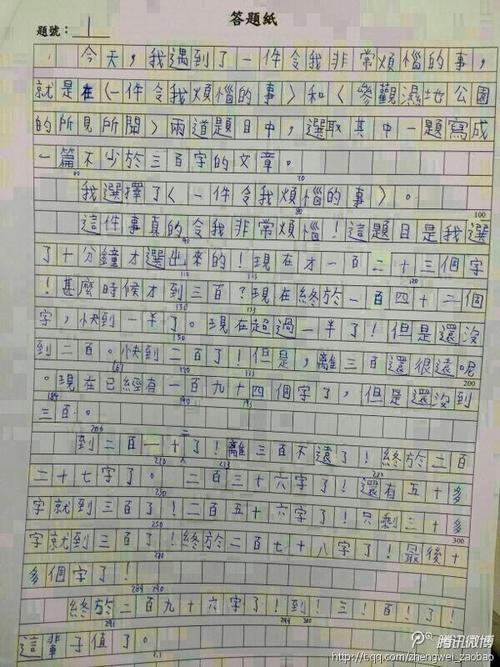 答題紙
題號：1
今天，我遇到了一件令我非常煩惱的事，
就是在〈一件令我煩惱的事〉和〈參觀濕地公園
的所見所聞〉兩道題目中，選取其中一題寫成
一篇不少於三百字的文章。
我選擇了〈一件令我煩惱的事〉。
100
這件事真的令我非常煩惱！這題目是我選
了十分鐘才選出來的！現在才一百二十三個字
！甚麼時候才到三百？現在終於一百四十二個
字，快到一半了。現在超過一半了！但是還沒
到二百。快到二百了！但是，離三百還很遠呢
200
。現在已經有一百九十四個字了，但是還沒到
三百。
到二百一十了！離三百不遠了！終於二百
二十七字了。二百三十六字了！還有五十多
字就到三百了！二百五十六字了！只剩三十多
300
字就到三百了！終於二百七十八字了！最後十
多個字了！
終於二百九十六字了！到！三！百！了！
這輩子值了。
腾讯微博
http://t.qq.com/zhengwei_zaobao